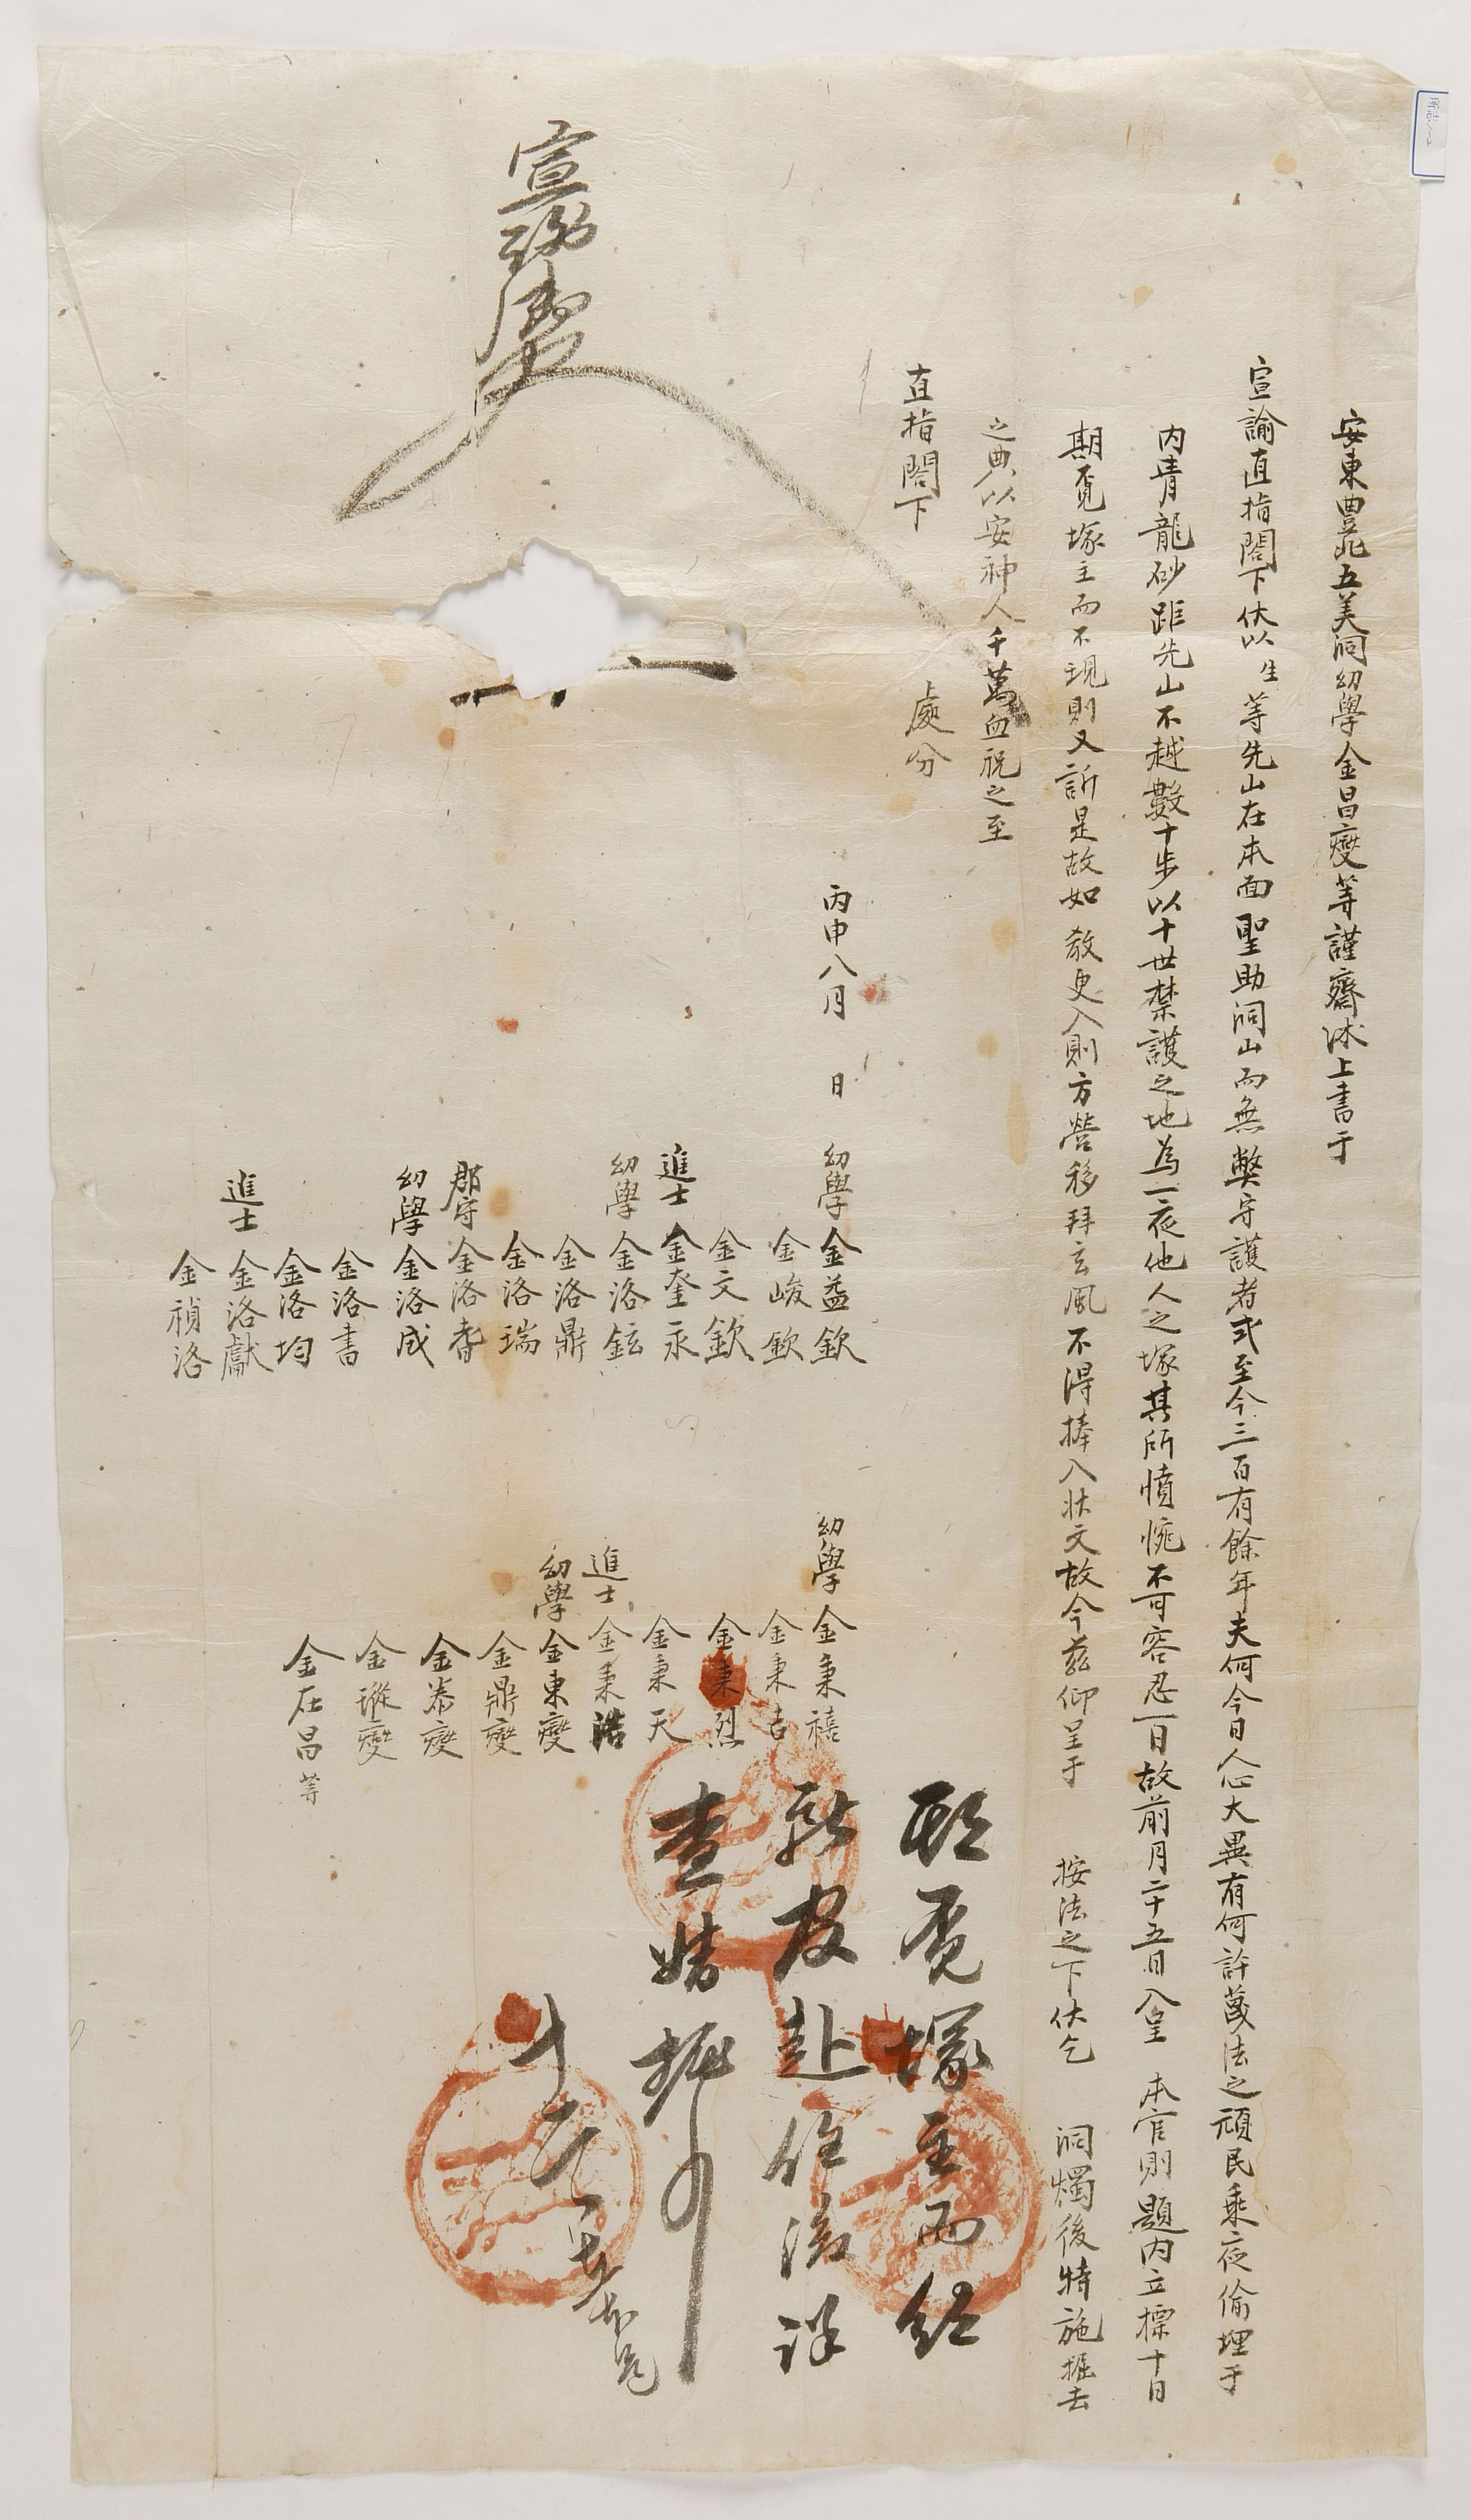 安東豊北五美洞幼學金昌燮等謹齋沐上書于
宣諭直指閤下伏以生等先山在本面聖助洞山而無弊守護者式至今三百有餘年夫何今日人心大異有何許蔑法之頑民乘夜偷埋于
內靑龍砂距先山不越數十步以十世禁護之地爲一夜他人之塚其所憤惋不可容忍一日故前月二十五日入呈 本官則題內立標十日
期覓塚主而不現則又訴是故如 敎更入則方營移拜玄風不得捧入狀文故今玆仰呈于 按法之下伏乞 洞燭後特施掘去
之典以安神人千萬血祝之至
直指閤下 處分
丙申八月 日
幼學金益欽
金峻欽
金文欽
進士金奎永
幼學金洛鉉
金洛鼎
金洛瑞
郡守金洛耆
幼學金洛成
金洛書
金洛均
進士金洛獻
金禎洛
幼學金秉禧
金秉吉
金秉烈
金秉天
進士金秉浩
幼學金東燮
金鼎燮
金泰燮
金璡燮
金在昌等
宣諭使
覓塚主而
赴任後詳
查掘